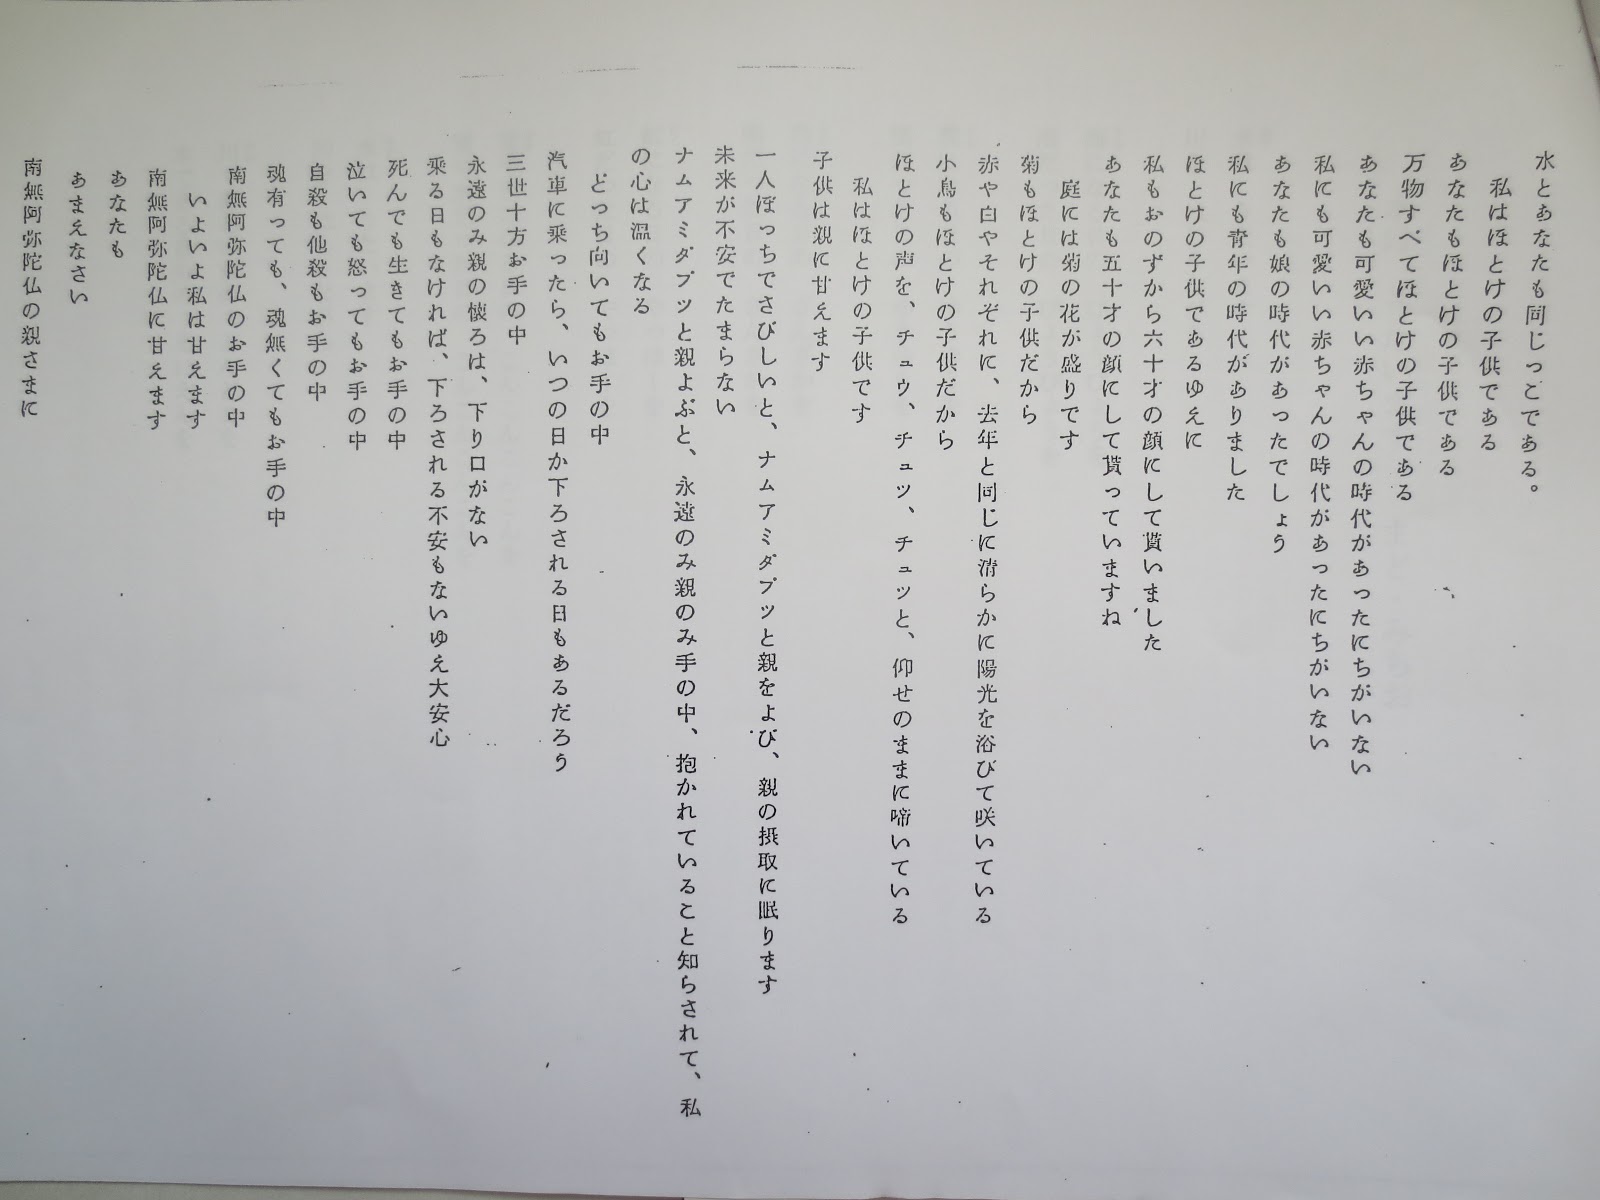 水とあなたも同じっこである。
私はほとけの子供である
あなたもほとけの子供である
万物すべてほとけの子供である
あなたも可愛いい赤ちゃんの時代があったにちがいない
私にも可愛いい赤ちゃんの時代があったにちがいない
あなたも娘の時代があったでしょう
私にも青年の時代がありました
ほとけの子供であるゆえに
私もおのずから六十才の顔にして貰いました
あなたも五十才の顔にして貰っていますね
庭には菊の花が盛りです
菊もほとけの子供だから
赤や白やそれぞれに、去年と同じに清らかに陽光を浴びて咲いている
小鳥もほとけの子供だから
ほとけの声を、チュウ、チュッ、チュッと、仰せのままに啼いている
私はほとけの子供です
子供は親に甘えます
一人ぼっちでさびしいと、ナムアミダブツと親をよび、親の摂取に眠ります
未来が不安でたまらない
ナムアミダブツと親よぶと、永遠のみ親のみ手の中、抱かれていること知らされて、私
の心は温くなる
どっち向いてもお手の中
汽車に乗ったら、いつの日か下ろされる日もあるだろう
三世十方お手の中
永遠のみ親の懐ろは、下り口がない
乗る日もなければ、下ろされる不安もないゆえ大安心
死んでも生きてもお手の中
泣いても怒ってもお手の中
自殺も他殺もお手の中
魂有っても、魂無くてもお手の中
南無阿弥陀仏のお手の中
いよいよ私は甘えます
南無阿弥陀仏に甘えます
あなたも
あまえなさい
南無阿弥陀仏の親さまに